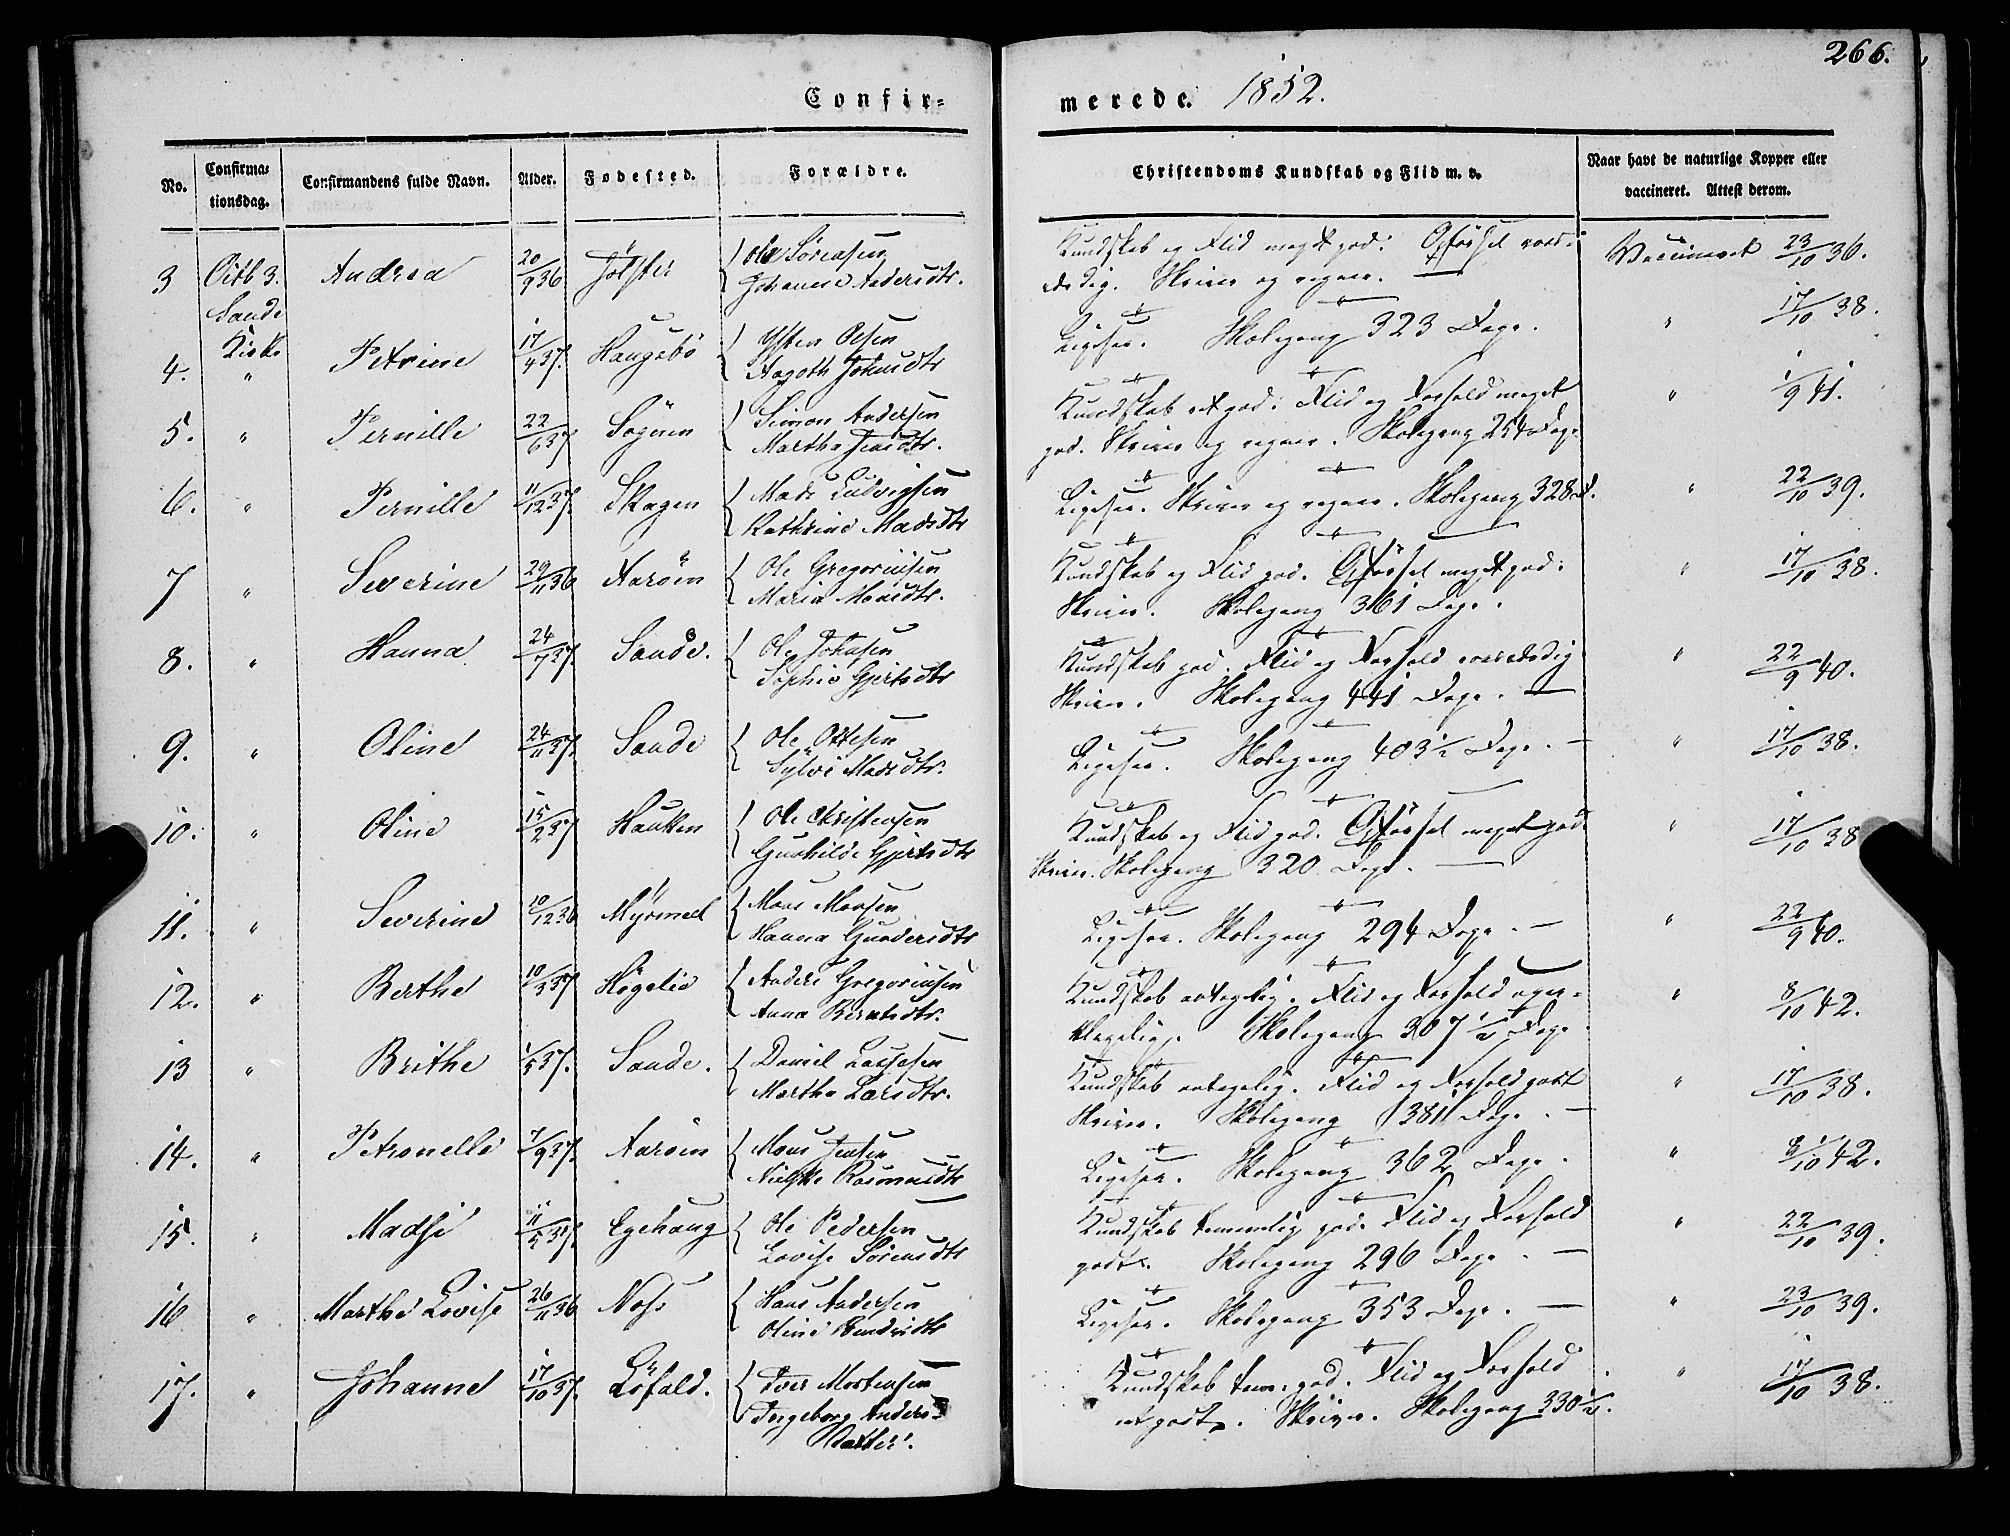 266.
Confir-
merede. 1852.
No. Confirma-tionsdag. Confirmandens fulde Navn. Alder. Fødested. Forældre. Christendoms Kundskab og Flid m. v. Naar havt de naturlige Kopper eller vaccineret. Attest derom.
3 Octb 3. Andrea 20/9 36 Jölster Ole Sörensen Kundskab og Flid meget god. Opförsel Vaccineret 23/10 36.
Sande Johanne Andersdtr. Skriver og regner.
Kirke
4. " Petrine 17/4 37. Haugsbö Olsen Ligesaa. Skolegang 323 Dage. " 17/10 38.
Aagoth
5. " Pernille 22/6 37 Sögnen Simon Andersen Kundskab ret god. Flid og Forhold meget " 1/9 41.
Marthe Jensdtr. god. Skriver og regner. Skolegang 254 Dage
6. " Pernille 11/12 37. Skagen Mads Ludvigsen Ligesaa. Skriver og regner. Skolegang 328 D. " 22/10 39.
Kathrine Madsdtr
7 " Severine 29/11 36 Aaröen Ole Gregoriusen Kundskab og Flid god. Opförsel meget god. " 17/10 38.
Maria Monsdtr. Skriver. Skolegang 361 Dage.
8. " Hanna 24/7 37. Sande. Ole Johnsen Kundskab god. Flid og Forhold " 22/9 40.
Sophie Gjertsdtr Skriver. Skolegang 441 Dage. —
9. " Oline 24/11 37. Sande Ole Ottesen Ligesaa. Skolegang 403½ Dage. — " 17/10 38.
Sylvi Madsdtr.
10. " Oline 15/2 37 Hauken Ole Christensen Kundskab og Flid god. Opförsel meget god. " 17/10 38
Gunhilde Gjertsdtr Skriver. Skolegang 320 Dage. —
11. " Severine 10/12 36 Myrmel Mons Monsen Ligesaa. Skolegang 294 Dage. — " 22/9 40.
Hanna Gundersdtr
12. " Berthe 10/3 37 Högelie Anders Gregoriusen Kundskab antagelig. Flid og Forhold upaa- " 8/10 42.
Anna Berntsdtr. klagelig. Skolegang 307½ Dage
13 " Brithe 1/5 37. Sande. Daniel Lassesen Kundskab antagelig. Flid og Forhold godt " 17/10 38.
Marthe Larsdtr. Skriver. Skolegang 381 Dage. —
14. " Petronelle 7/9 37. Aaröen Mons Jensen Ligesaa. Skolegang 362 Dage. " 8/10 42.
Rasmusdtr
15. " Madsi 11/5 37. Egehaug Ole Pedersen Kundskab temmelig god. Flid og Forhold " 22/10 39.
Lovise Sörensdtr godt. Skolegang 296 Dage. —
16 " Marthe Lovise 26/11 36 Hans Andersen Ligesaa. Skolegang 353 Dage. — " 23/10 39.
Oline
17. " Johanne 17/10 37. Löfald. Iver Mortensen Kundskab tem. god. Flid og Forhold " 17/10 38.
Ingeborg Anders- ret godt. Skriver. Skolegang 330½.
Datter.